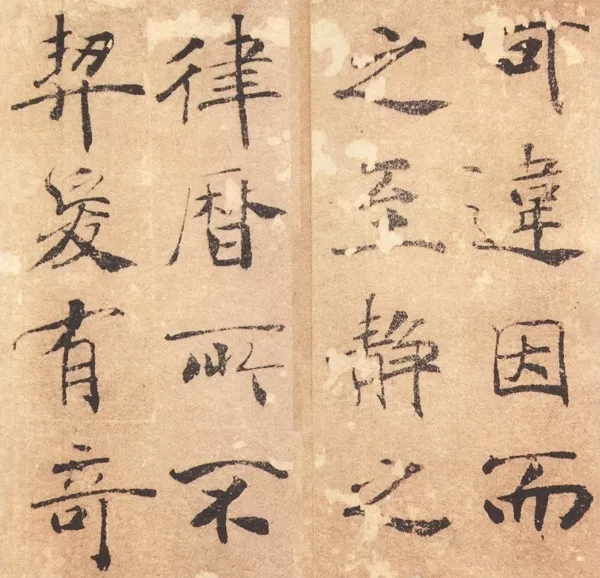 可違因而
之至靜之
律曆所不
契爰有奇